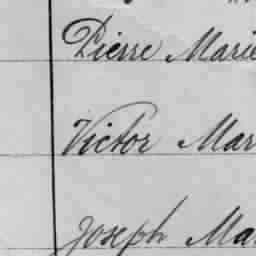 Pierre Marie
Victor Mar
Joseph Ma